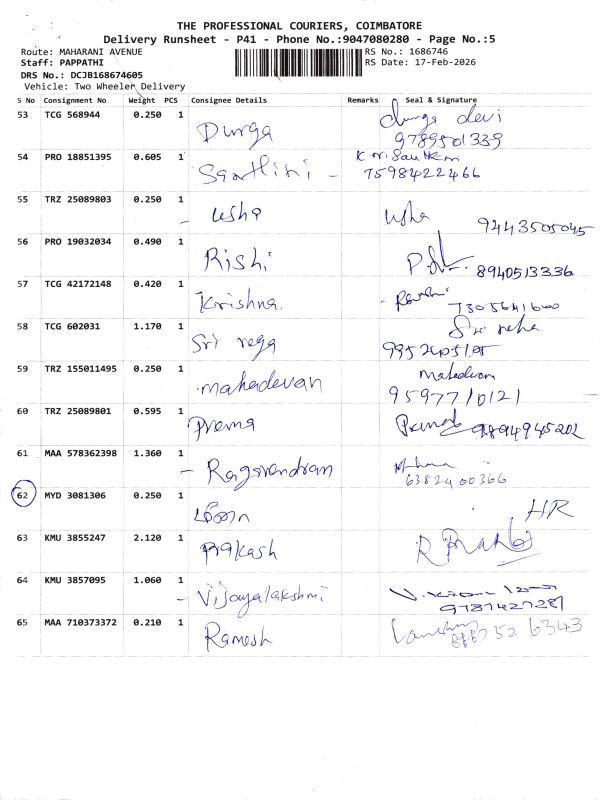 THE PROFESSIONAL COURIERS, COIMBATORE
Delivery Runsheet - P41 - Phone No.:9047080280 - Page No.:5
Route: MAHARANI AVENUE RS No.: 1686746
Staff: PAPPATHI RS Date: 17-Feb-2026
DRS No.: DCJB168674605
Vehicle: Two Wheeler Delivery
S No Consignment No Weight PCS Consignee Details Remarks Seal & Signature
53 TCG 568944 0.250 1 Durga durga devi
9789501339
54 PRO 18851395 0.605 1 Santhini -
7598422466
55 TRZ 25089803 0.250 1 - usha usha 9443505045
56 PRO 19032034 0.490 1 Rishi 8940513336
57 TCG 42172148 0.420 1 Krishna
7305641600
58 TCG 602031 1.170 1 Sri rega
59 TRZ 155011495 0.250 1 mahadevan Mahadevan
9597710121
60 TRZ 25089801 0.595 1 Prema 9894945202
61 MAA 578362398 1.360 1 - Ragavendran
6382400366
62 MYD 3081306 0.250 1 HR
63 KMU 3855247 2.120 1 Prakash
64 KMU 3857095 1.060 1 - Vijayalakshmi
9787427281
65 MAA 710373372 0.210 1 Ramesh